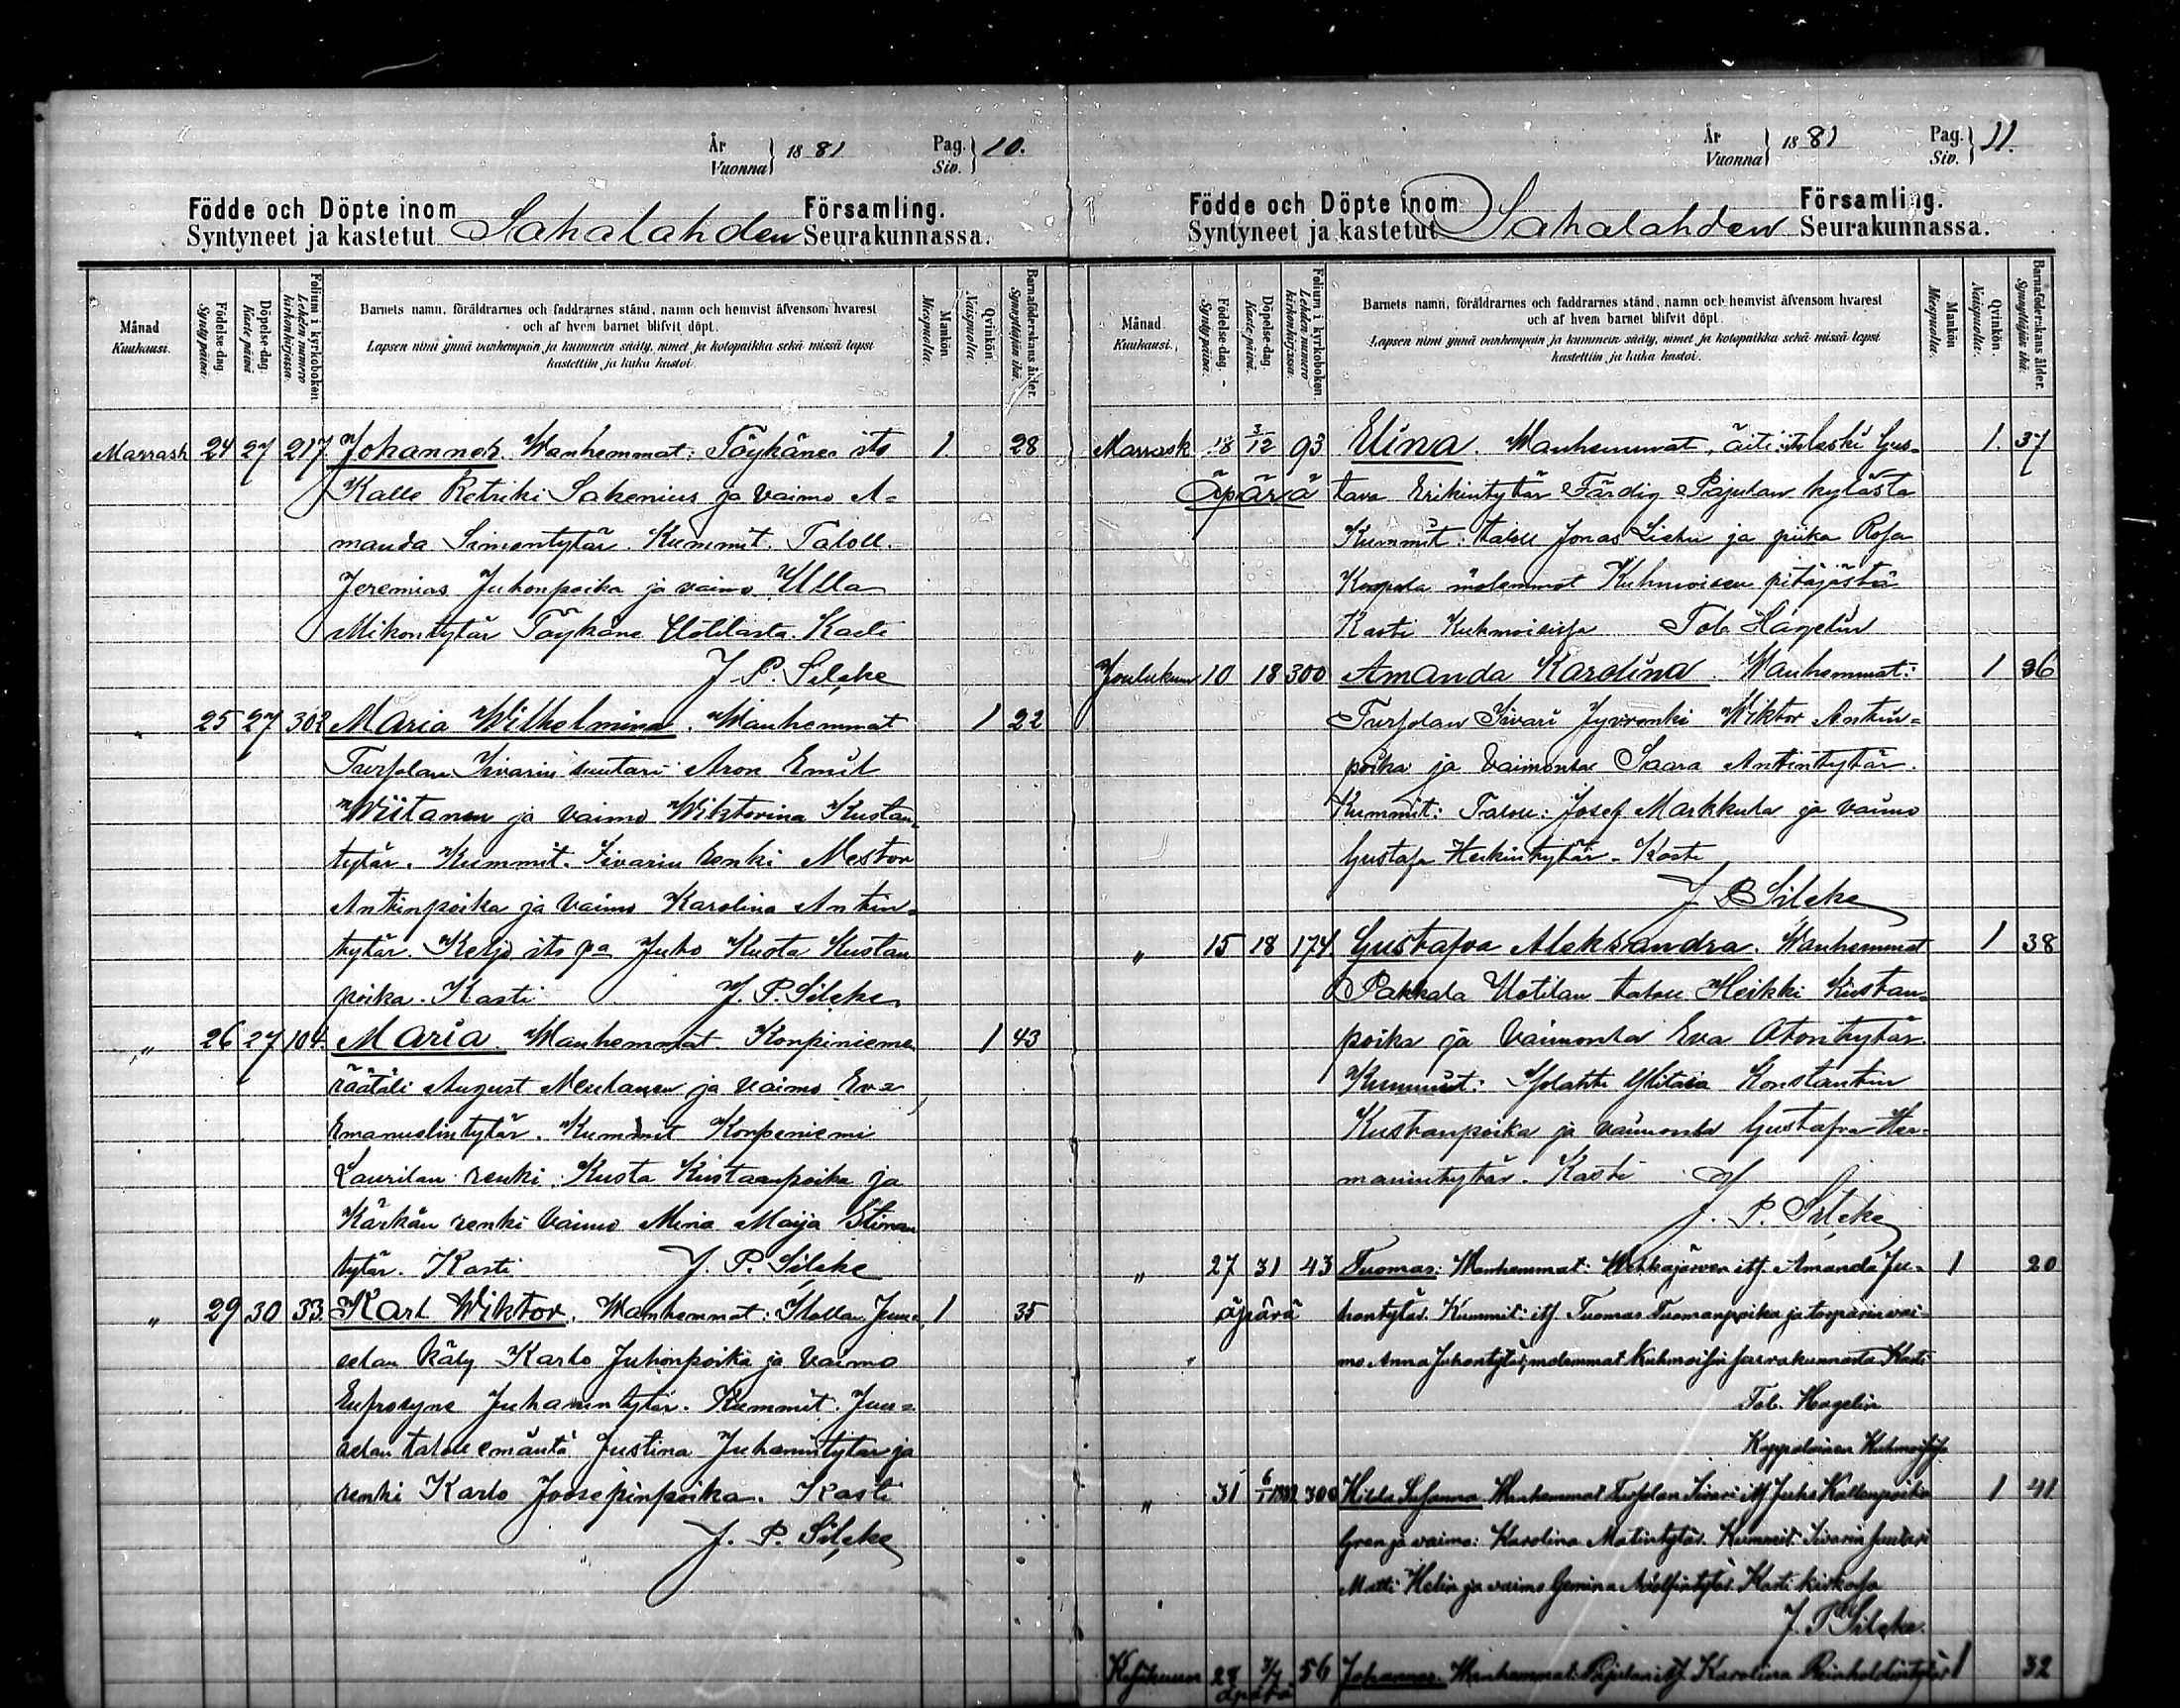 År
Vuonna } 1881 Pag.
Siv. } 10.
Födde och Döpte inom Församling.
Syntyneet ja kastetut Sahalahden Seurakunnassa.
Månad
Kuukausi.
Födelse-dag.
Syntypäivä.
Döpelse-dag.
Kastepäivä
Folium i kyrkoboken.
Lehden numero
kirkonkirjassa.
Barnets namn, föräldrarnes och faddrarnes stånd, namn och hemvist äfvensom hvarest
och af hvem barnet blifvit döpt.
Lapsen nimi ynnä vanhempain ja kummein sääty, nimet ja kotopaikka sekä missä lapsi
kastettiin ja kuka kastoi.
Mankön
Miespuolia.
Qvinkön.
Naispuolia.
Barnaföderskans ålder.
Synnyttäjän ikä.
Marrask 24 27 217 Johannes. Wanhemmat: Töykänen its 1 28
Kalle Retriki Sakenius ja vaimo A=
manda Simontytär. Kummit. Taloll.
Jeremias Juhonpoika ja vaimo Ulla
Mikontytär Töykäne Uotilasta. Kasti
J. P. Silcke
" 25 27 302 Maria Wilhelmina. Wanhemmat 1 22
Turpolan Iivarin suutari Aron Emil
Wiitanen ja vaimo Wiktorina Kustan=
tytär. Kummit. Iivarin renki Nestor
Antinpoika ja vaimo Karolina Antin=
tytär. Keljo its pa Juho Kusta Kustan
poika. Kasti J. P. Silcke
" 26 27 104. Maria. Wanhemmat. Konpinieme 1 43
räätäli August Neulanen ja vaimo Eva
Emanuelintytär. Kummit Konpeniemi
Laurilan renki Kusta Kustaanpoika ja
Kärkän renki vaimo Mina Maija Stinan
tytär. Kasti J. P. Silcke
" 29 30 33. Karl Wiktor. Wanhemmat: Juu= 1 35
selan Karlo Juhonpoika ja vaimo
Eufrosyne Juhanintytär. Kummit. Juu=
selan talon emäntä Justina Juhanintytär ja
renki Karlo Joosepinpoika. Kasti
J. P. Silcke
År
Vuonna } 1881 Pag.
Siv. } 11.
Födde och Döpte inom Församling.
Syntyneet ja kastetut Sahalahden Seurakunnassa.
Månad
Kuukausi.
Födelse-dag.
Syntypäivä.
Döpelse-dag
Kastepäivä.
Folium i kyrkoboken.
Lehden numero
kirkonkirjassa.
Barnets namn, föräldrarnes och faddrarnes stånd, namn och hemvist äfvensom hvarest
och af hvem barnet blifvit döpt.
Lapsen nimi ynnä vanhempain ja kummein sääty, nimet ja kotopaikka sekä missä lapsi
kastettiin ja kuka kastoi.
Mankön
Miespuolia.
Qvinkön.
Naispuolia.
Barnaföderskans ålder.
Synnyttäjän ikä.
Marrask 18 3/12 93 Elina. Wanhemmat, äiti: its leski Gus= 1. 37
äpärä tava Erikintytär Färdig Pajulan kylästä
Kummit: taloll Jonas ja piika Rosa
molemmat Kuhmoisen pitäjästä
Kasti Kuhmoisissa Tob. Hagelin
Joulukuu 10 18 300 Amanda Karolina. Wanhemmat: 1 36
Turpolan Iivari Wiktor Antin=
poika ja vaimonsa Saara Antintytär.
Kummit: Taloll: Josef Markkula ja vaimo
Gustafa Heikintytär. Kasti
J P Silcke
" 15 18 174. Gustafva Aleksandra. Wanhemmat 1 38
Pakkala Uotilan taloll Heikki Kustan=
poika ja vaimonsa Eva Atontytär
Kummit: Ylitalo Konstantin
Kustanpoika ja vaimonsa Gustafva Her=
manintytär. Kasti
J. P. Silcke
" 27 31 43 Tuomas: Wanhemmat: Wehkajärven its. Amanda Ju= 1 20
äpärä hontytär. Kummit: its Tuomas Tuomanpoika ja torparin vai=
mo Anna Juhontytär, molemmat Kuhmoisin seurakunnasta. Kasti
Tob. Hagelin
Kappalainen Kuhmoisissa
" 31 6/1 1882 300 Hilda Susanna Wanhemmat Turpolan Iivari its Juho Kallenpoika 1 41
Gren ja vaimo: Karolina Matintytär. Kummit: Iivarin suutari
Matti Helin ja vaimo Gemina Adolfintytär. Kasti kirkossa
J. P Silcke.
Kesäkuun 28 3/7 56 Johannes. Wanhemmat: Pajulan its. Karolina Reinholdintytär 1 32
äpärä